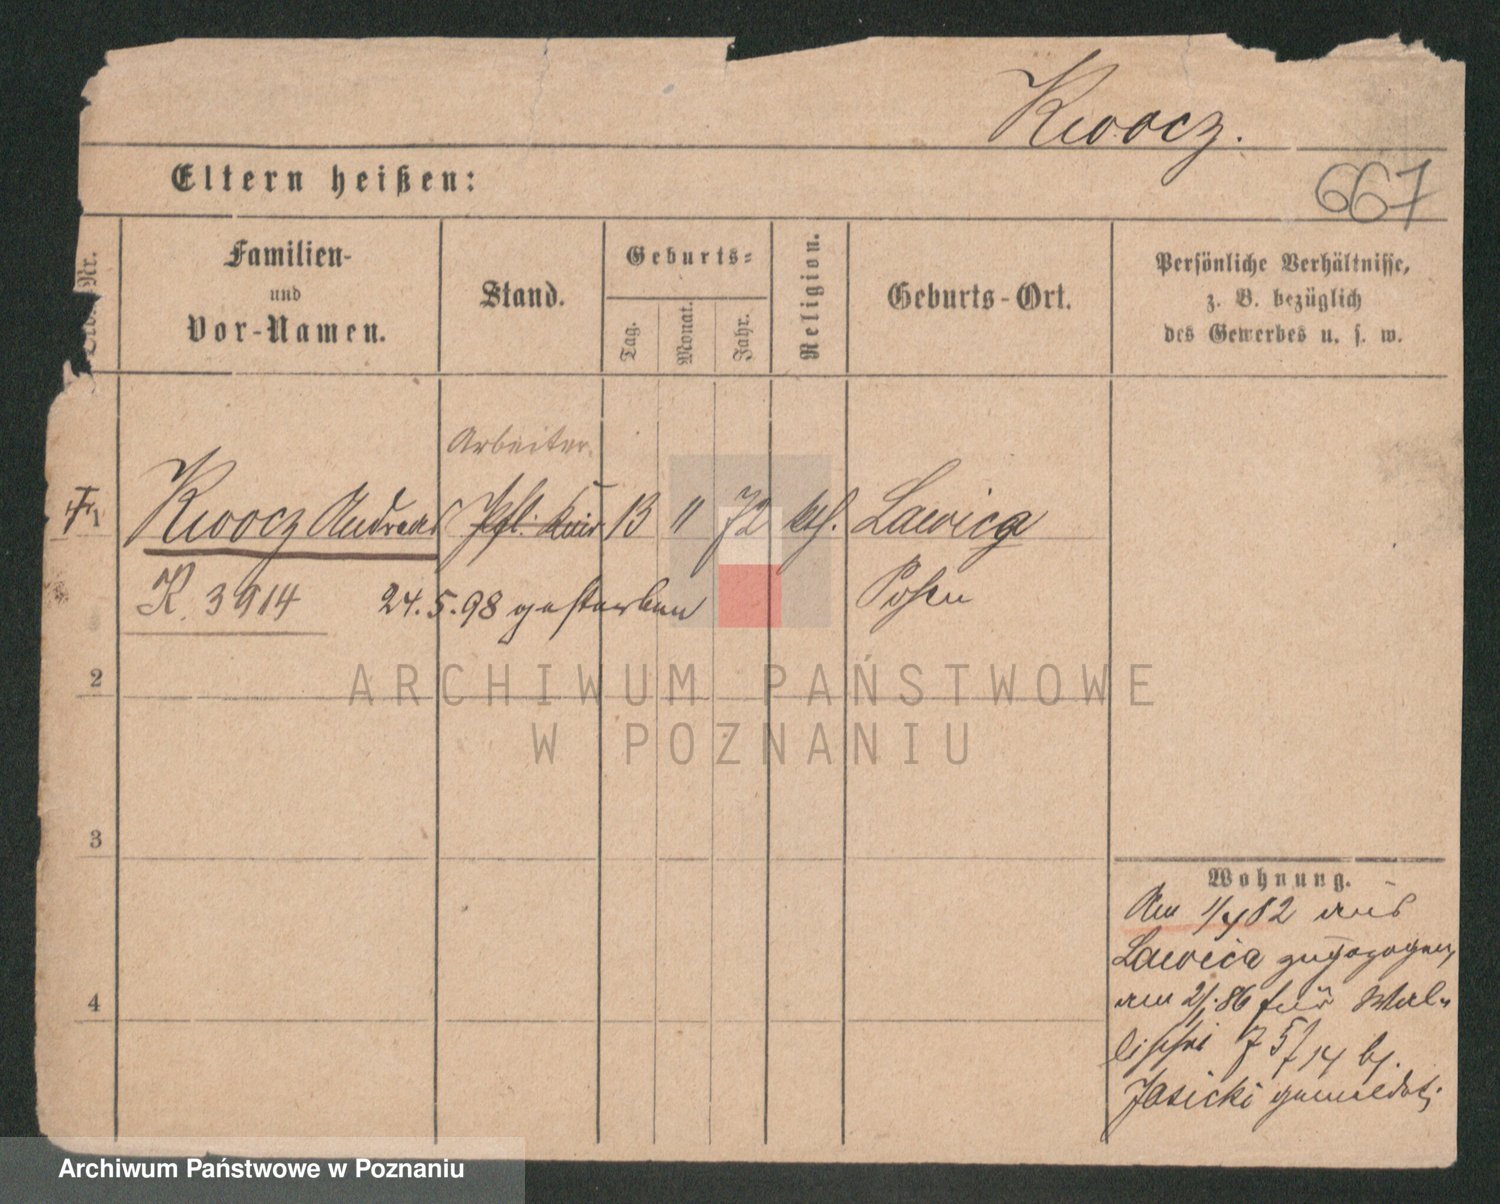 Kwocz.
667
Eltern heißen:
Nr.
Familien-
und
Vor-Namen.
Stand.
Geburts-
Tag.
Monat.
Jahr.
Religion.
Geburts-Ort.
Persönliche Verhältnisse,
z. B. bezüglich
des Gewerbes u. s. w.
Arbeiter.
1 Kwocz Andreas 13 11 72 kth. Lawica
K. 3914 24.5.98 gestorben Posen
2
ARCHIWUM PAŃSTWOWE
W POZNANIU
3
4
Wohnung.
Am 1/4 82 aus
Lawica zugezogen,
am 2/1.86 für Wal-
lischei 75/74 bj.
Jasicki gemeldet;
Archiwum Państwowe w Poznaniu